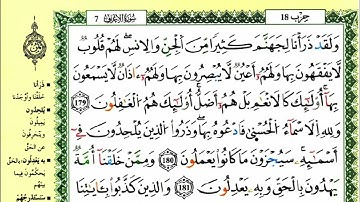 حزب 18
سورة الأعراف
7
وَلَقَدْ ذَرَأْنَا لِجَهَنَّمَ كَثِيرًا مِّنَ ٱلْجِنِّ وَٱلْإِنسِ لَهُمْ قُلُوبٌ
لَّا يَفْقَهُونَ بِهَا وَلَهُمْ أَعْيُنٌ لَّا يُبْصِرُونَ بِهَا وَلَهُمْ ءَاذَانٌ لَّا يَسْمَعُونَ
بِهَا أُو۟لَٰٓئِكَ كَٱلْأَنْعَٰمِ بَلْ هُمْ أَضَلُّ أُو۟لَٰٓئِكَ هُمُ ٱلْغَٰفِلُونَ 179
وَلِلَّهِ ٱلْأَسْمَآءُ ٱلْحُسْنَىٰ فَٱدْعُوهُ بِهَا وَذَرُوا۟ ٱلَّذِينَ يُلْحِدُونَ فِىٓ
أَسْمَٰٓئِهِۦ سَيُجْزَوْنَ مَا كَانُوا۟ يَعْمَلُونَ 180 وَمِمَّنْ خَلَقْنَآ أُمَّةٌ
يَهْدُونَ بِٱلْحَقِّ وَبِهِۦ يَعْدِلُونَ 181 وَٱلَّذِينَ كَذَّبُوا۟ بِـَٔايَٰتِنَا
ذَرَأْنَا
خلقنا وأوجدنا
يُلْحِدُونَ
يميلون
وينحرفون
عن الحق
به يَعْدِلُونَ: بالحق
يحكمون فيما
بينهم
سنستدرجهم